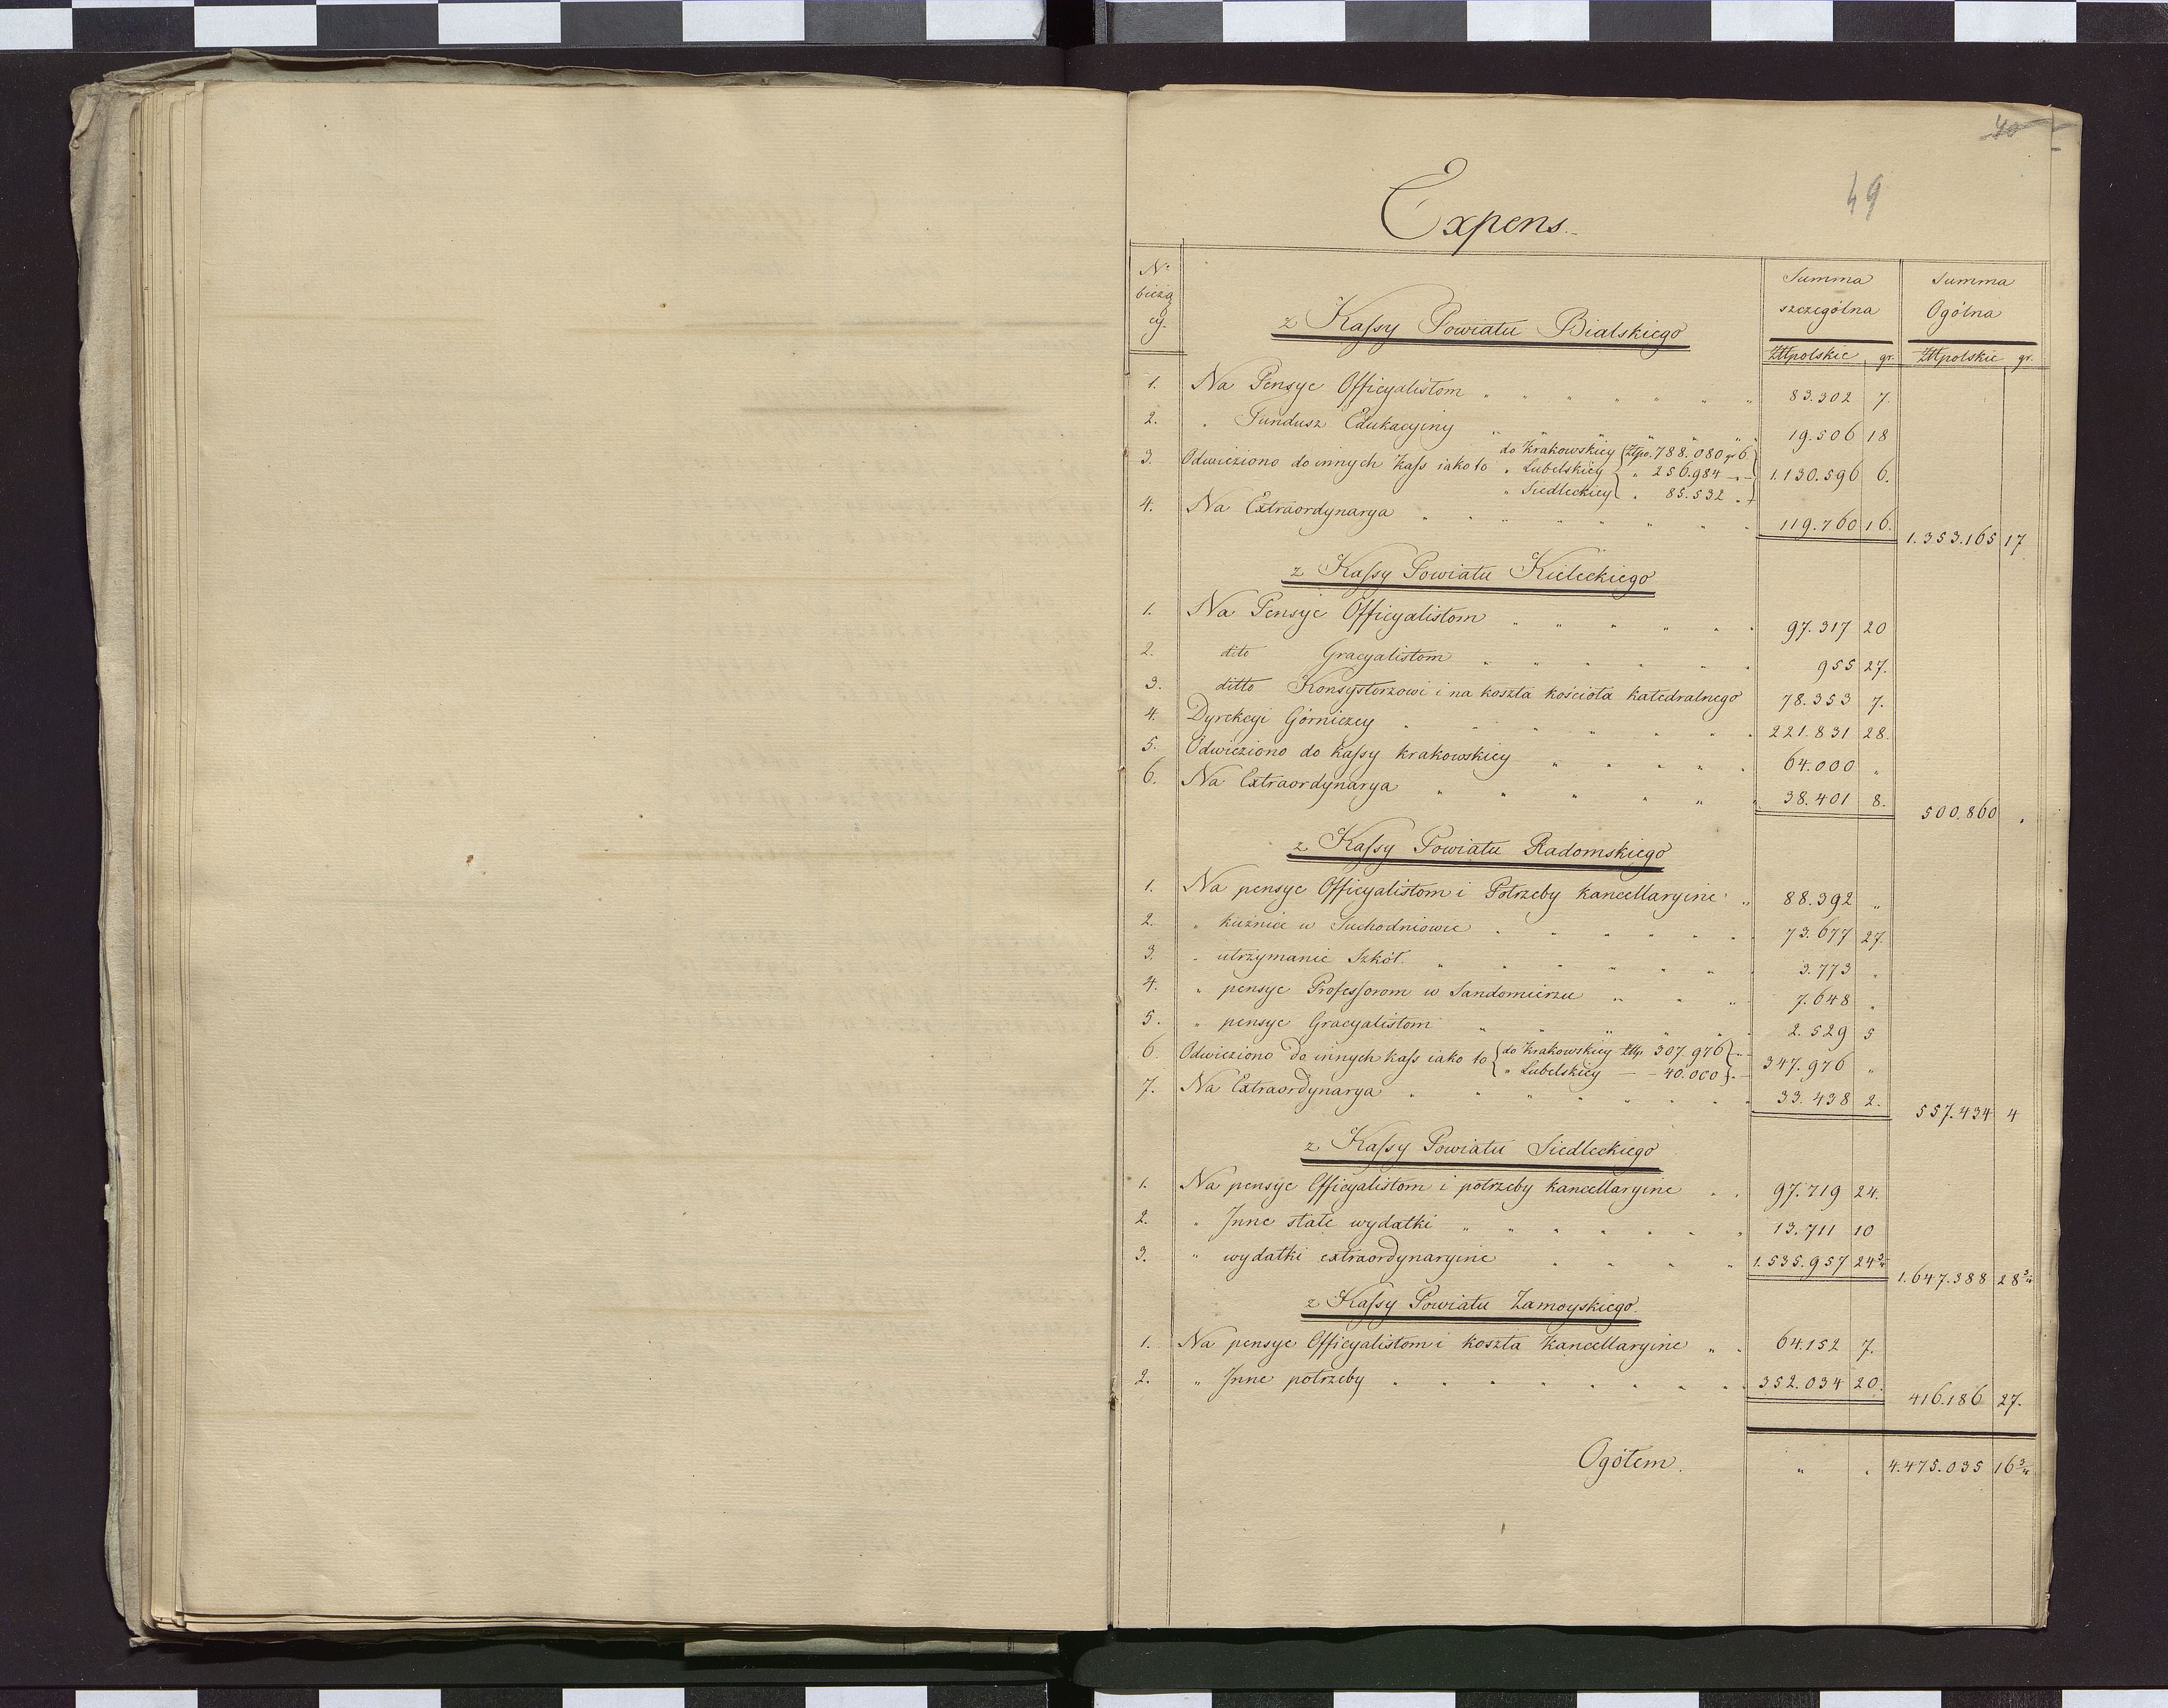 40
49
Expens.
Nº bieżący.
z Kassy Powiatu Bialskiego
Summa szczególna
Summa Ogólna
Złłpolskie gr. Złłpolskie gr.
1. Na Pensye Officyalistom 83.302 7.
2. " Fundusz Edukacyiny 19.506 18
3. Odwieziono do innych Kass iako to do Krakowskiey Złpo. 788.080 gr 6
" Lubelskiey " 256.984 1.130.596 6.
" Siedleckiey " 85.532
4. Na Extraordynarya 119.760 16. 1.353.165 17
z Kassy Powiatu Kieleckiego
1. Na Pensye Officyalistom 97.317 20
2. dito Gracyalistom 955 27.
3. ditto Konsystorzowi i na koszta kościoła katedralnego 78.353 7.
4. Dyrekcyi Górniczey 221.831 28.
5. Odwieziono do kassy krakowskiey 64.000 "
6. Na Extraordynarya 38.401 8. 500.860 "
z Kassy Powiatu Radomskiego
1. Na pensye Officyalistom i Potrzeby kancellaryine 88.392 "
2. " kuźnice w Suchodniowie 73.677 27.
3. " utrzymanie Szkół 3.773 "
4. " pensye Professorom w Sandomierzu 7.648 "
5. " pensye Gracyalistom 2.529 5
6. Odwieziono do innych kass iako to do Krakowskiey Złłp. 307.976
" Lubelskiey — 40.000 347.976 "
7. Na Extraordynarya 33.438 2. 557.434 4
z Kassy Powiatu Siedleckiego
1. Na pensye Officyalistom i potrzeby kancellaryine 97.719 24.
2. " Jnne stałe wydatki 13.711 10
3. " wydatki extraordynaryine 1.535.957 24¾ 1.647.388 28¾
z Kassy Powiatu Zamoyskiego.
1. Na pensye Officyalistom i koszta Kancellaryine 64.152 7.
2. " Jnne potrzeby 352.034 20. 416.186 27.
Ogółem. " " 4.475.035 16¾